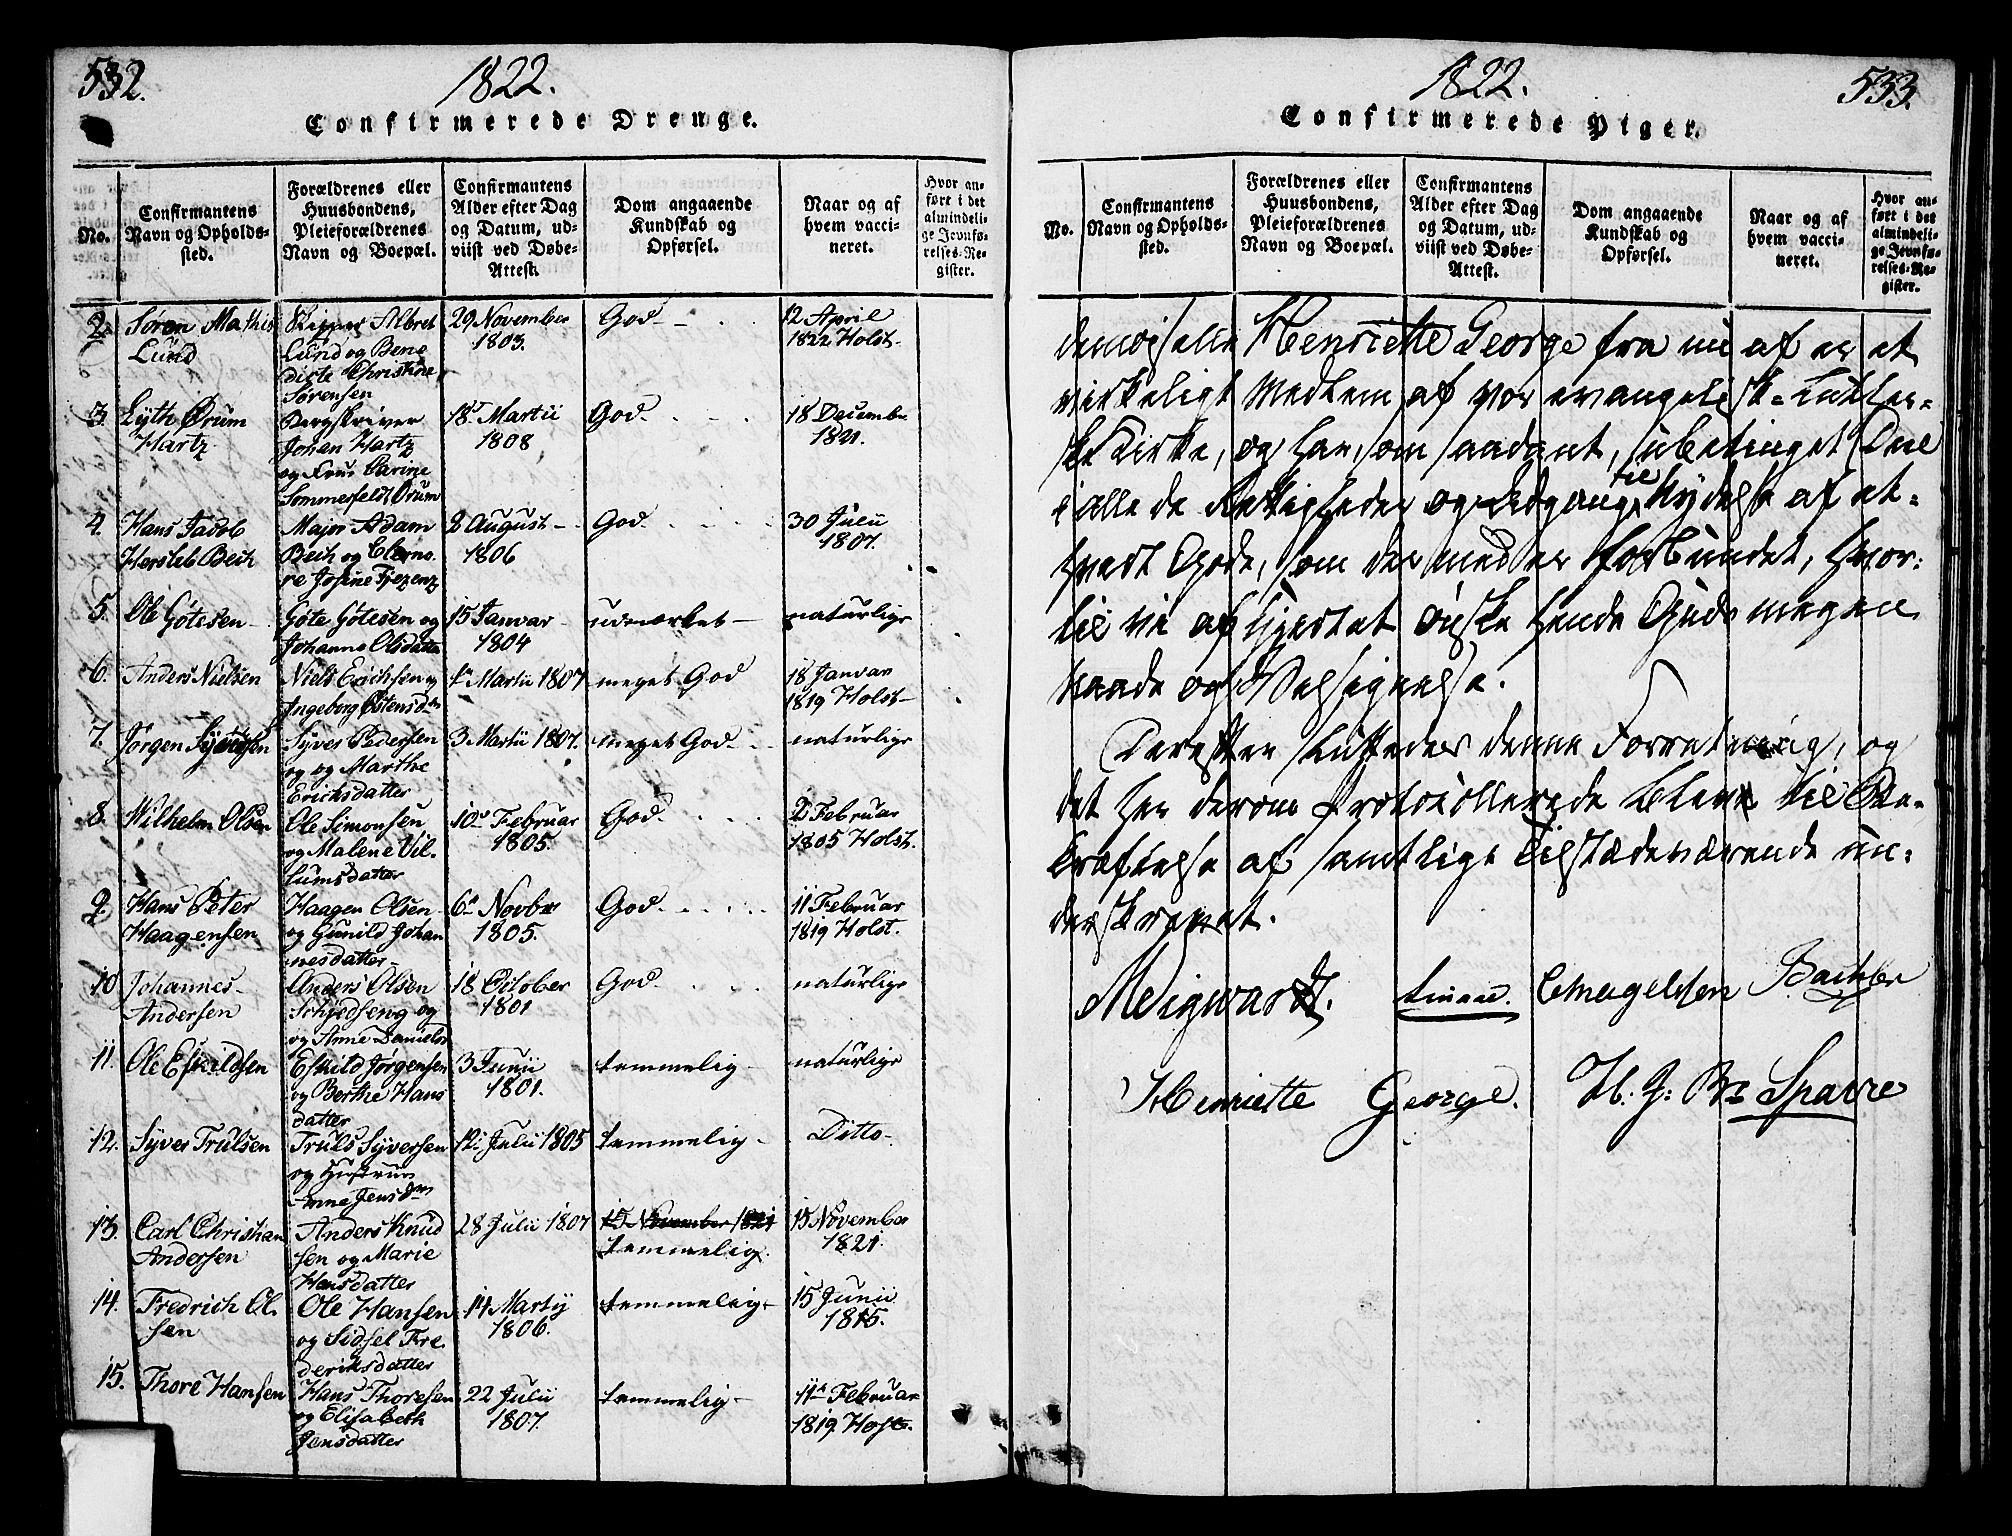 532.
1822.
Confirmerede Drenge.
No.
Confirmantens
Navn og Opholds-
sted.
Forældrenes eller
Huusbondens,
Pleieforældrenes
Navn og Boepæl.
Confirmantens
Alder efter Dag
og Datum, ud-
viist ved Døbe-
Attest.
Dom angaaende
Kundskab og
Opførsel.
Naar og af
hvem vacci-
neret.
Hvor an-
ført i det
almindeli-
ge Jevnfø-
relses-Re-
gister.
2. Søren Mathis
Lund
Skipper Albret
Lund og Bene
dicte Christine
Sørensen
29 November
1803.
God
12 April
1822 Holst
3. Lyth Ørum
Hartz
Bergskriver
Johan Hartz
og Frue Carine
Sommerfeldt Ørum
18 Martii
1808
God
18 Decembr
1821.
4. Hans Jacob
Hersleb Bech
Major Adam
Bech og Eleono
re Josine
8 August
1806
God
30 Julii
1807.
5. Ole Gøtesen
Gøte Gøtesen og
Johanne Olsdatter
15 Januar
1804
udmærket
naturlige
6. Anders Nielsen
Niels Erichsen og
Ingeborg Østensdr
1 Martii 1807
meget God
18 Januar
1819 Holst
7. Jørgen Syversen
Syver Pedersen
og og Marthe
Erichsdatter
3 Martii 1807.
meget God
naturlige
8. Wilhelm Olsen
Ole Simonsen
og Malene Vil-
lumsdatter
10 Februar
1805.
God
2 Februar
1805 Holst.
9. Hans Peter
Haagensen
Haagen Olsen
og Gunild Johan
nesdatter
6 Novbr
1805.
God
11 Februar
1819 Holst.
10 Johannes
Andersen
Anders Olsen
og
og Anne Danielsdr
18 October
1801
God
naturlige
11. Ole Eskildsen
Eskild Jørgensen
og Berthe Hans
datter
3 Junii
1801.
temmelig
naturlige
12. Syver Trulsen
Truls Syversen
og Hustrue
Anne Jensdr
12 Julii 1805
temmelig
Ditto
13. Carl Christian
Andersen
Anders Knud
sen og Marie
Hansdatter
28 Julii 1807
15 November 1821
temmelig.
15 November
1821.
14. Fredrich Ol
sen
Ole Hansen
og Sidsel Fre
deriksdatter
14 Martij
1806.
temmelig
15 Junii
1815.
15. Thore Hansen
Hans Thoresen
og Elisabeth
Jensdatter
22 Julii
1807.
temmelig
11 Februar
1819 Holst.
1822.
533.
Confirmerede Piger.
No.
Confirmantens
Navn og Opholds-
sted.
Forældrenes eller
Huusbondens,
Pleieforældrenes
Navn og Boepæl.
Confirmantens
Alder efter Dag
og Datum, ud-
viist ved Døbe-
Attest.
Dom angaaende
Kundskab og
Opførsel.
Naar og af
hvem vacci-
neret.
Hvor an-
ført i det
almindeli-
ge Jevnfø-
relses-Re-
gister.
demoiselle Henriette George fra nu af er et
virkeligt Medlem af vor evangelisk-Luther-
ske Kirke, og har, som saadant, ubetinget Deel
i alle de Rettigheder og Adgang til Nydelse af et-
hvert Gode, som dermed er forbundet, hvor-
til vi af Hjertet ønske hende Guds megen
Naade og Velsignelse.
Derefter sluttedes denne Forretning, og
det her derom Protocollerede blev til Be-
kræftelse af samtlige Tilstædeværende un-
derskrevet.
Meigwardt.
Henriette George.
H. J. Br Sparre